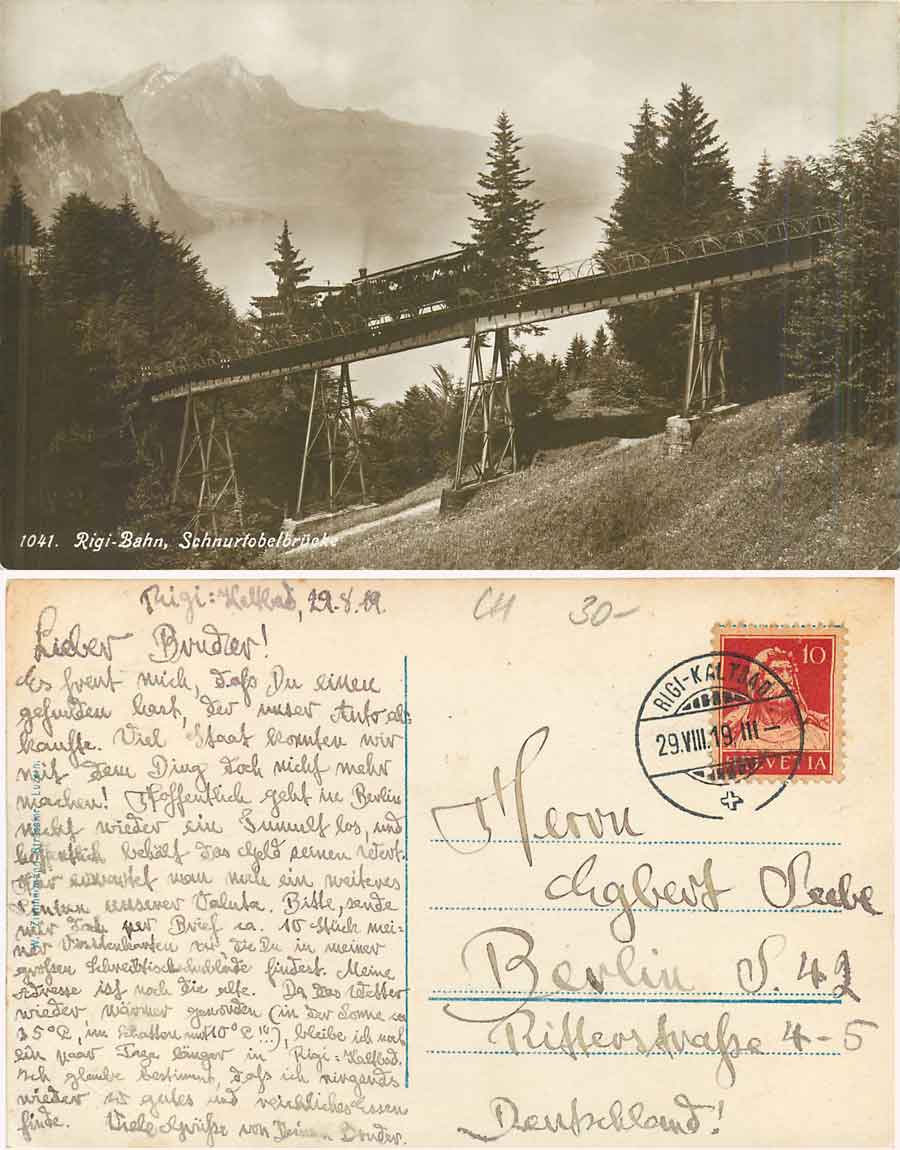 1041. Rigi-Bahn, Schnurtobelbrücke
Rigi-Kaltbad, 29.8.19.
CH 30-
Lieber Bruder!
Es freut mich, daß Du einen
gefunden hast, der unser Auto ab-
kaufte. Viel Staat konnten wir
mit dem Ding doch nicht mehr
machen! Hoffentlich geht in Berlin
nicht wieder ein Tumult los, und
hoffentlich behält das Geld seinen Wert.
Hier erwartet man noch ein weiteres
Sinken unserer Valuta. Bitte, sende
mir doch per Brief ca. 10 Stück mei-
ner Visitenkarten zu die Du in meiner
großen Schreibtischschublade findest. Meine
Adresse ist noch die alte. Da das Wetter
wieder wärmer geworden (in der Sonne
35°C, im Schatten mit 10°C !!), bleibe ich noch
ein paar Tage länger in Rigi-Kaltbad.
Ich glaube bestimmt, daß ich nirgends
wieder so gutes und reichliches Essen
finde. Viele Grüße von Deinem Bruder.
RIGI-KALTBAD
29.VIII.19.III-
10
HELVETIA
Herrn
Egbert Seebe
Berlin S. 42
Ritterstraße 4-5
Deutschland!